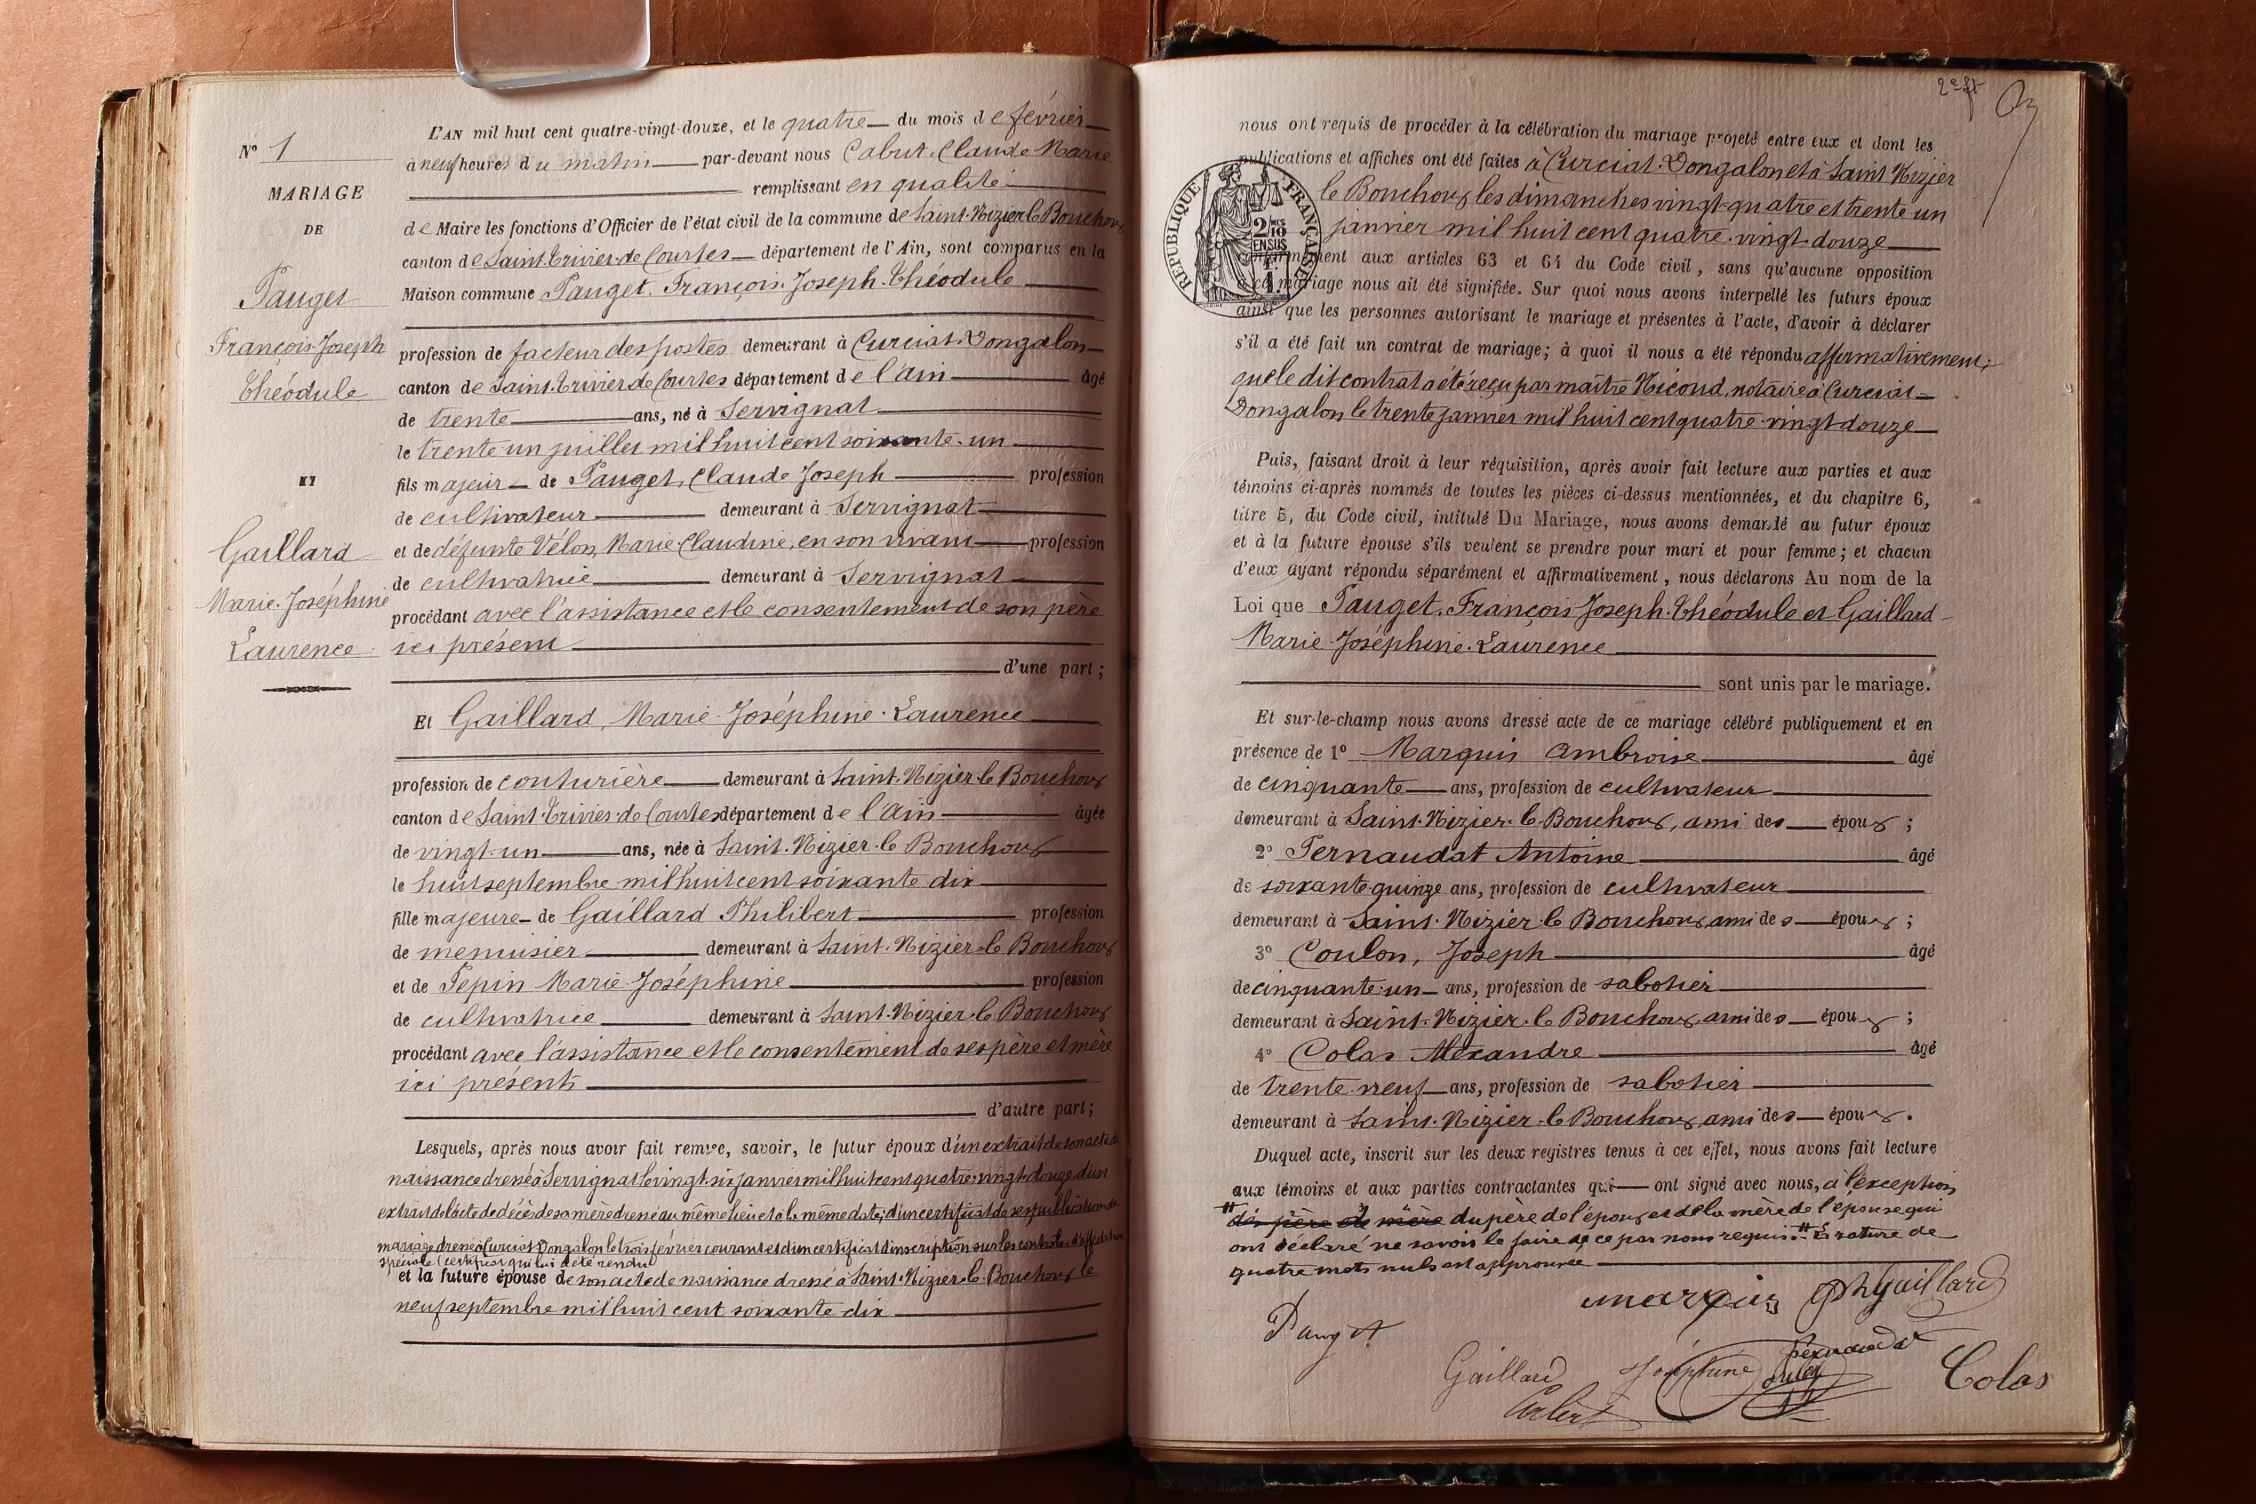 N° 1
MARIAGE
DE
Pauget
François Joseph
Théodule
ET
Gaillard
Marie-Joséphine
Laurence
L'AN mil huit cent quatre-vingt-douze, et le quatre du mois de février
à neuf heures du matin par-devant nous Cabut, Claude Marie
remplissant en qualité
de Maire les fonctions d'Officier de l'état civil de la commune de Saint-Nizier le Bouchoux
canton de Saint-Trivier-de Courtes département de l'Ain, sont comparus en la
Maison commune Pauget, François-Joseph-Théodule
profession de facteur des postes demeurant à Curciat-Dongalon
canton de Saint-Trivier de Courtes département de l'Ain âgé
de trente ans, né à Servignat
le trente un juillet mil huit cent soixante-un
fils majeur de Pauget, Claude Joseph profession
de cultivateur demeurant à Servignat
et de défunte Vélon, Marie-Claudine, en son vivant profession
de cultivatrice demeurant à Servignat
procédant avec l'assistance et le consentement de son père
ici présent
d'une part;
Et Gaillard, Marie-Joséphine-Laurence
profession de couturière demeurant à Saint-Nizier-le Bouchoux
canton de Saint-Trivier-de Courtes département de l'Ain âgée
de vingt-un ans, née à Saint-Nizier-le Bouchoux
le huit septembre mil huit cent soixante-dix
fille majeure de Gaillard Philibert profession
de menuisier demeurant à Saint-Nizier-le Bouchoux
et de Pepin Marie-Joséphine profession
de cultivatrice demeurant à Saint-Nizier-le Bouchoux
procédant avec l'assistance et le consentement de ses père et mère
ici présents
d'autre part;
Lesquels, après nous avoir fait remise, savoir, le futur époux d'un extrait de son acte de
naissance dressé à Servignat le vingt-six janvier mil huit cent quatre-vingt-douze, d'un
extrait de l'acte de décès de sa mère dressé au même lieu et à la même date; d'un certificat de ses publications de
mariage dressé à Curciat-Dongalon le trois février courant et d'un certificat d'inscription sur les contrôles
spéciale (certificat qui lui a été rendu)
et la future épouse de son acte de naissance dressé à Saint-Nizier-le-Bouchoux le
neuf septembre mil huit cent soixante-dix
2e ft
nous ont requis de procéder à la célébration du mariage projeté entre eux et dont les
publications et affiches ont été faites à Curciat-Dongalon et à Saint Nizier
le Bouchoux les dimanches vingt-quatre et trente un
janvier mil huit cent quatre-vingt-douze
conformément aux articles 63 et 64 du Code civil, sans qu'aucune opposition
à ce mariage nous ait été signifiée. Sur quoi nous avons interpellé les futurs époux
ainsi que les personnes autorisant le mariage et présentes à l'acte, d'avoir à déclarer
s'il a été fait un contrat de mariage; à quoi il nous a été répondu affirmativement;
que le dit contrat a été reçu par maître Nicoud, notaire à Curciat-
Dongalon, le trente janvier mil huit cent quatre-vingt-douze
RÉPUBLIQUE FRANÇAISE
2/10
EN SUS
Puis, faisant droit à leur réquisition, après avoir fait lecture aux parties et aux
témoins ci-après nommés de toutes les pièces ci-dessus mentionnées, et du chapitre 6,
titre 5, du Code civil, intitulé Du Mariage, nous avons demandé au futur époux
et à la future épouse s'ils veulent se prendre pour mari et pour femme; et chacun
d'eux ayant répondu séparément et affirmativement, nous déclarons Au nom de la
Loi que Pauget, François Joseph-Théodule et Gaillard
Marie-Joséphine-Laurence
sont unis par le mariage.
Et sur-le-champ nous avons dressé acte de ce mariage célébré publiquement et en
présence de 1° Marquis Ambroise âgé
de cinquante ans, profession de cultivateur
demeurant à Saint-Nizier-le-Bouchoux, ami des époux;
2° Pernaudat Antoine âgé
de soixante quinze ans, profession de cultivateur
demeurant à Saint-Nizier-le Bouchoux, ami des époux;
3° Coulon, Joseph âgé
de cinquante-un ans, profession de sabotier
demeurant à Saint-Nizier-le Bouchoux, ami des époux;
4° Colas Alexandre âgé
de trente-neuf ans, profession de sabotier
demeurant à Saint-Nizier-le Bouchoux, ami des époux.
Duquel acte, inscrit sur les deux registres tenus à cet effet, nous avons fait lecture
aux témoins et aux parties contractantes qui ont signé avec nous, à l'exception
des père et mère du père de l'époux et de la mère de l'épouse qui
ont déclaré ne savoir le faire de ce par nous requis. La rature de
quatre mots nuls est approuvée
marquis PhGaillard
Pauget
Gaillard Joséphine Pernaudat
Colas